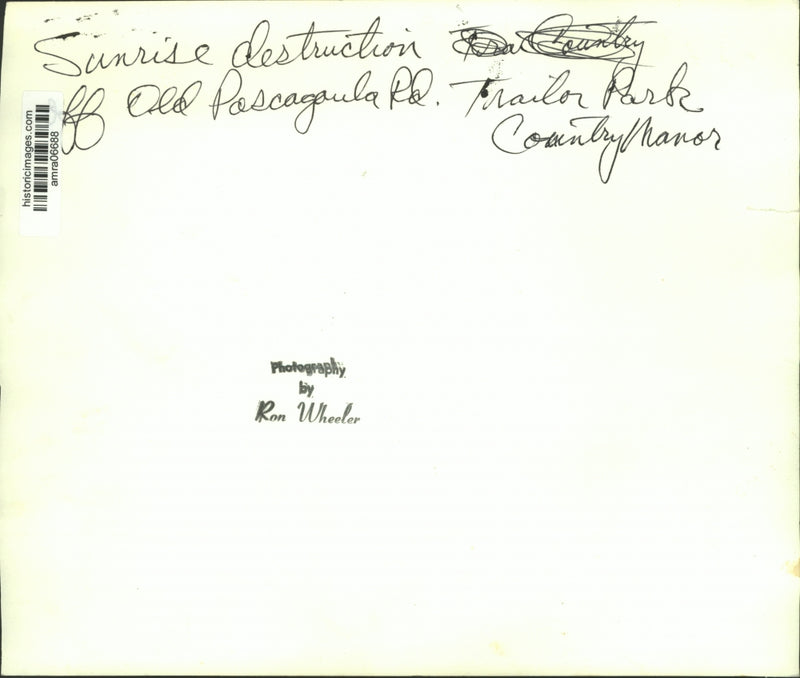 Sunrise destruction
off Old Pascagoula Rd. Trailor Park
Country Manor
historicimages.com
amra06688
Photography
by
Ron Wheeler